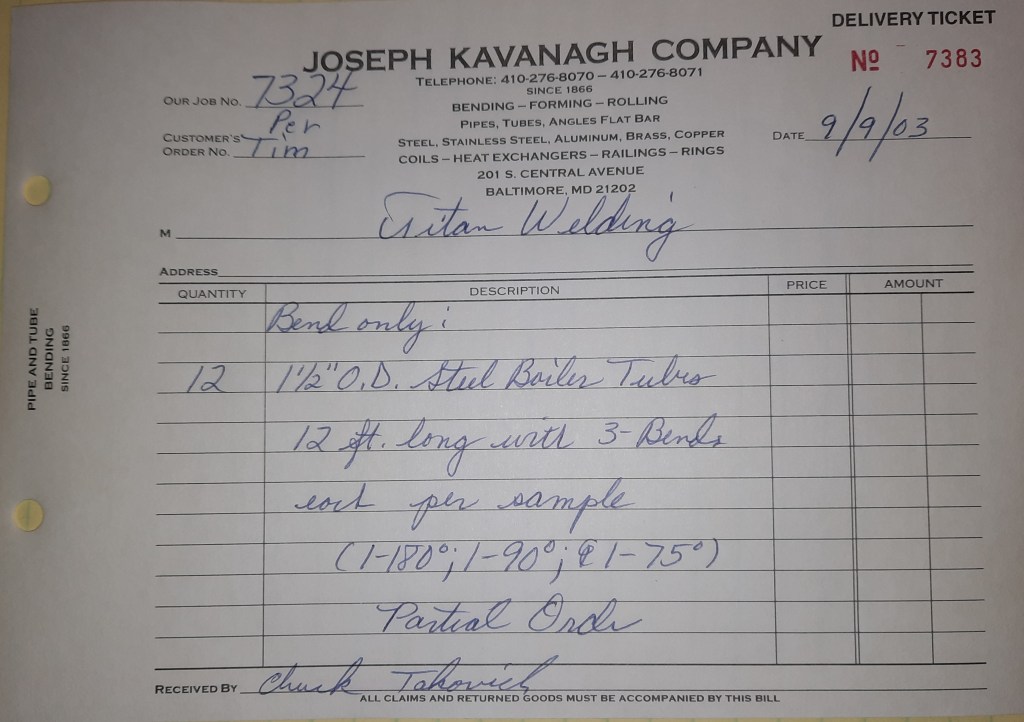 DELIVERY TICKET
JOSEPH KAVANAGH COMPANY
Nº 7383
TELEPHONE: 410-276-8070 – 410-276-8071
SINCE 1866
OUR JOB NO. 7324
BENDING – FORMING – ROLLING
PIPES, TUBES, ANGLES FLAT BAR
CUSTOMER'S ORDER NO. Per Tim
STEEL, STAINLESS STEEL, ALUMINUM, BRASS, COPPER
DATE 9/9/03
COILS – HEAT EXCHANGERS – RAILINGS – RINGS
201 S. CENTRAL AVENUE
BALTIMORE, MD 21202
M Titan Welding
ADDRESS
QUANTITY DESCRIPTION PRICE AMOUNT
Bend only:
12 1 1/2" O.D. Steel Boiler Tubes
12 ft. long with 3-Bends
each per sample
(1-180°; 1-90°; & 1-75°)
Partial Order
RECEIVED BY Chuck Takovich
ALL CLAIMS AND RETURNED GOODS MUST BE ACCOMPANIED BY THIS BILL
PIPE AND TUBE
BENDING
SINCE 1866